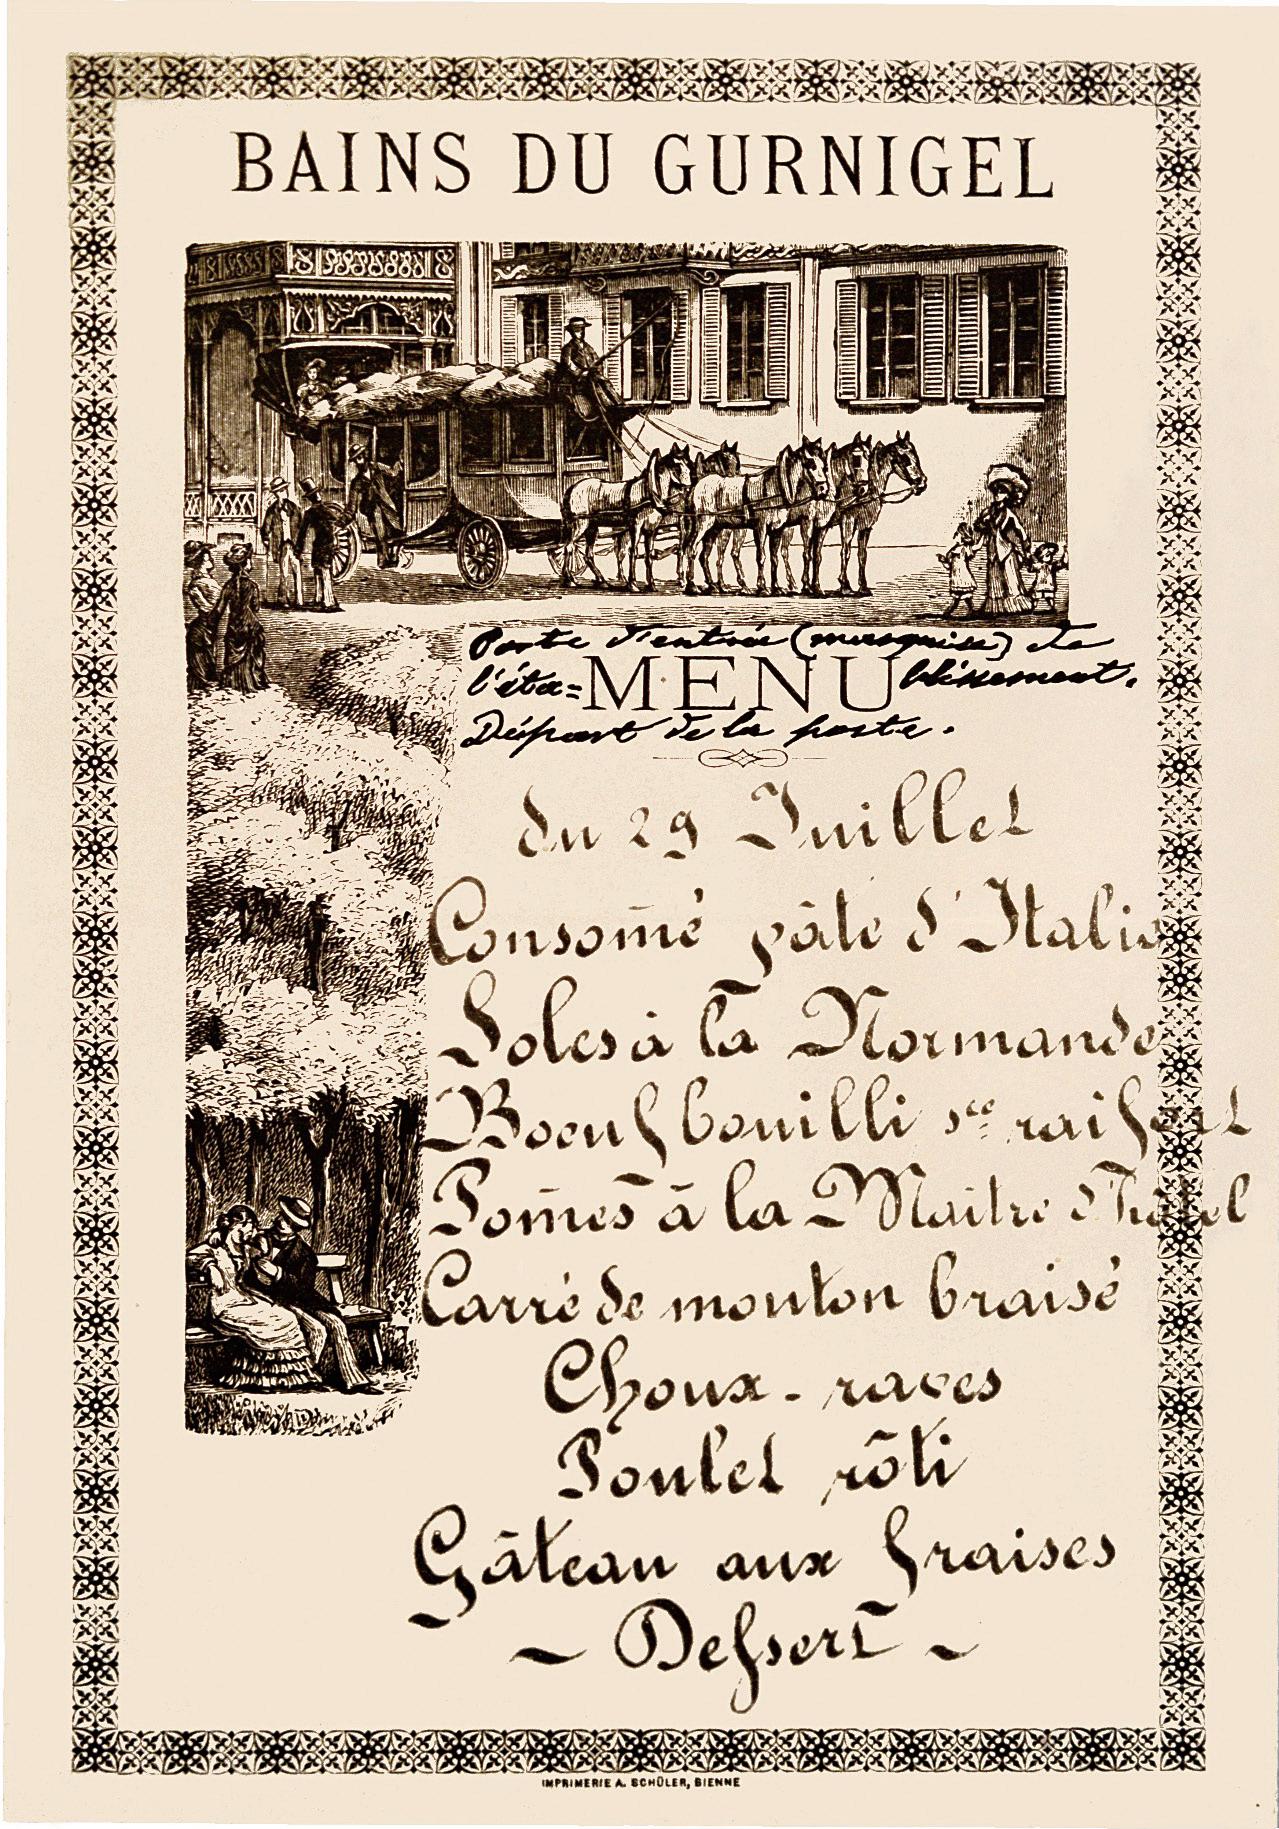 BAINS DU GURNIGEL
Porte d'entrée (marquise) de
l'éta= MENU blissement.
Départ de la poste.
du 29 Juillet
Consom̄é pâte d'Italie
Soles à la Normande
Boeuf bouilli sce raifort
Pom̄es à la Maitre d'hôtel
Carré de mouton braisé
Choux-raves
Poulet rôti
Gâteau aux fraises
~ Deſsert ~
IMPRIMERIE A. SCHÜLER, BIENNE